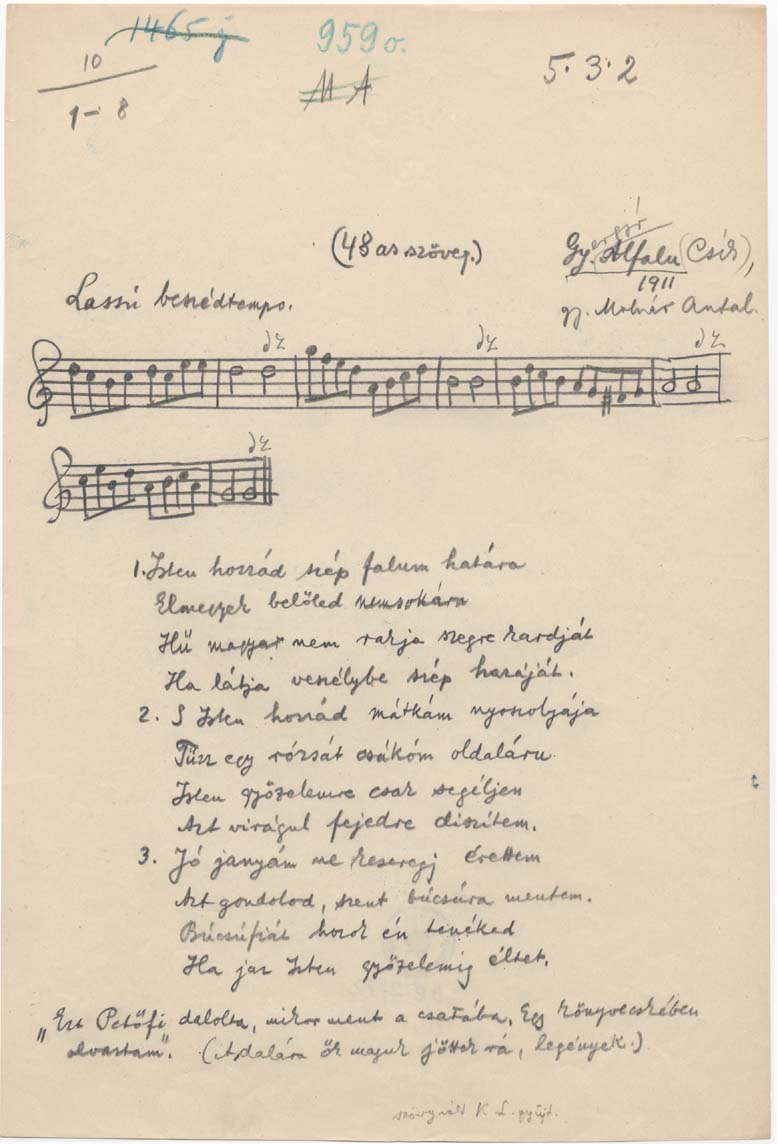 1465 j
959 o.
10
1 - 8
M A
5. 3. 2
(48 as szöveg.)
Gyergyó Alfalu (Csík),
1911
gy. Molnár Antal.
Lassú beszédtempo.
1. Isten hozzád szép falum határa
Elmegyek belőled nemsokára
Hű magyar nem rakja szegre kardját
Ha látja veszélybe szép hazáját.
2. S Isten hozzád mátkám nyoszolyája
Tűzz egy rózsát csákóm oldalára
Isten győzelemre csak segéljen
Azt virágul fejedre díszítem.
3. Jó janyám ne keseregj érettem
Azt gondolod, szent búcsúra mentem.
Búcsúfiát hozok én tenéked
Ha jaz Isten győzelemig éltet.
„Ezt Petőfi dalolta, mikor ment a csatába, Egy könyvecskében
olvastam". (A dalára ők maguk jöttek rá, legények.)
K